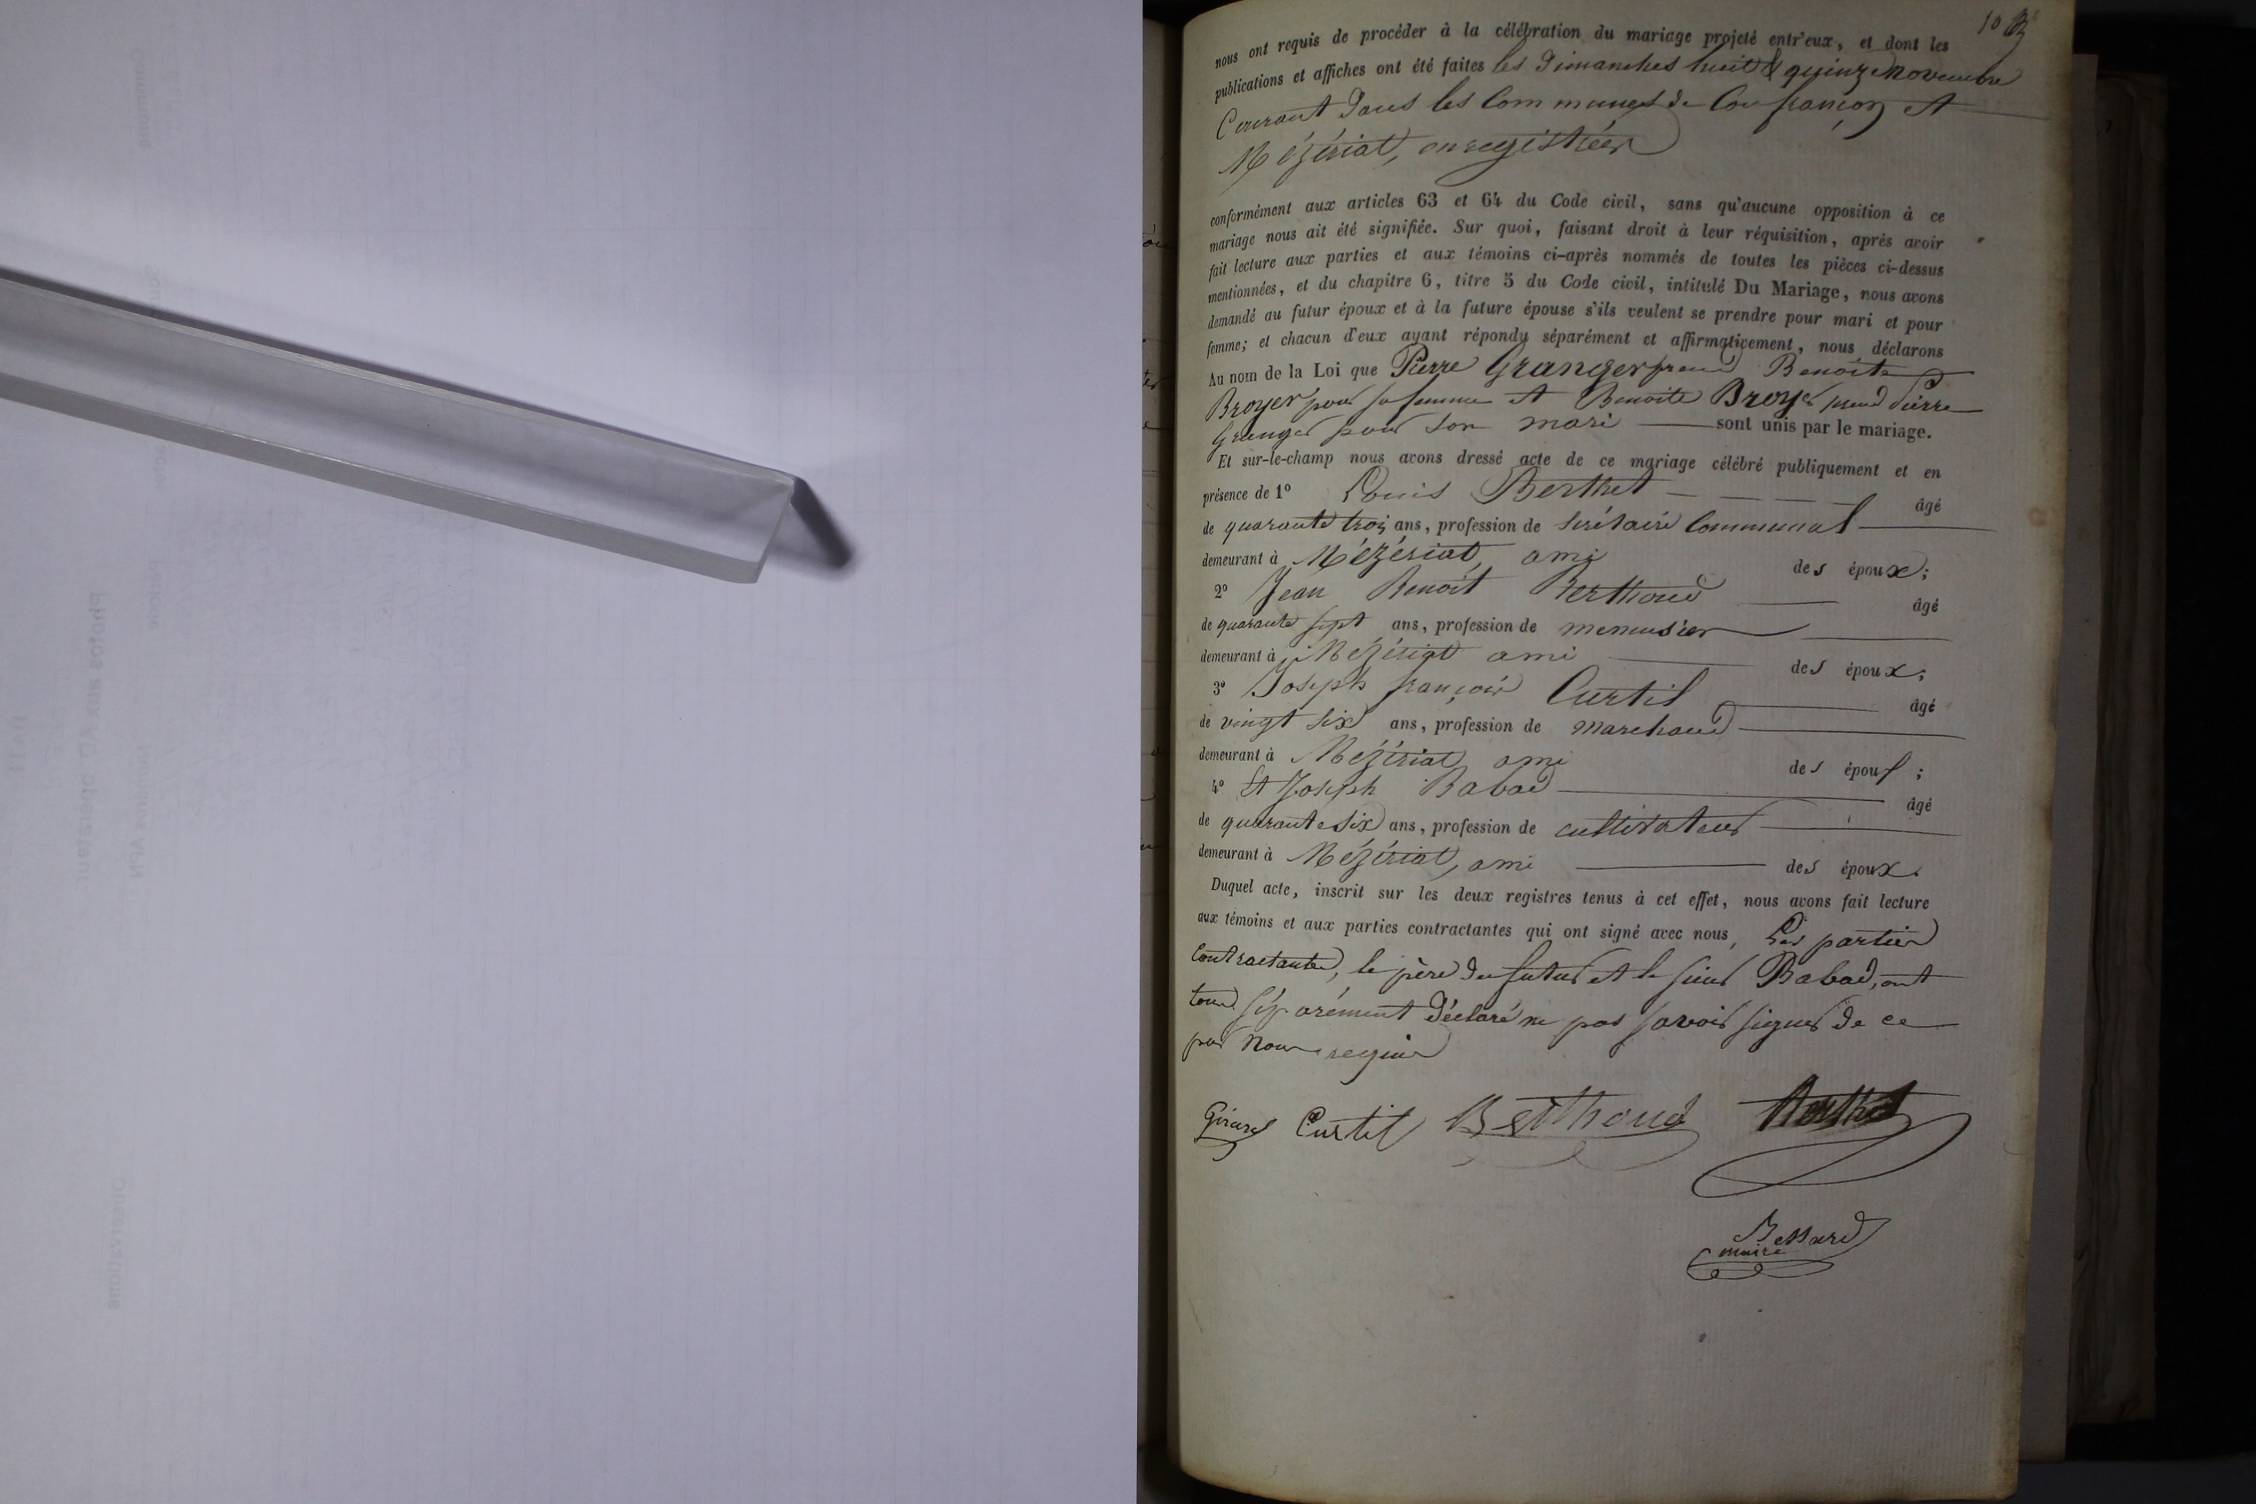 nous ont requis de procéder à la célébration du mariage projeté entr'eux, et dont les
publications et affiches ont été faites les Dimanches huit & quinze novembre
Courant dans les Communes de Confrançon et
Mézériat, enregistrées
conformément aux articles 63 et 64 du Code civil, sans qu'aucune opposition à ce
mariage nous ait été signifiée. Sur quoi, faisant droit à leur réquisition, après avoir
fait lecture aux parties et aux témoins ci-après nommés de toutes les pièces ci-dessus
mentionnées, et du chapitre 6, titre 5 du Code civil, intitulé Du Mariage, nous avons
demandé au futur époux et à la future épouse s'ils veulent se prendre pour mari et pour
femme; et chacun d'eux ayant répondu séparément et affirmativement, nous déclarons
Au nom de la Loi que Pierre Granger prend Benoite
Broyer pour sa femme et Benoite Broyer prend Pierre
Granger pour son mari sont unis par le mariage.
Et sur-le-champ nous avons dressé acte de ce mariage célébré publiquement et en
présence de 1º Louis Berthet âgé
de quarante trois ans, profession de secrétaire Communal
demeurant à Mézériat, ami des époux;
2º Jean Benoit Berthoud âgé
de quarante sept ans, profession de menuisier
demeurant à Mézériat ami des époux;
3º Joseph françois Curtil âgé
de vingt six ans, profession de marchand
demeurant à Mézériat, ami des époux;
4º Et Joseph Babad âgé
de quarante six ans, profession de cultivateur
demeurant à Mézériat, ami des époux.
Duquel acte, inscrit sur les deux registres tenus à cet effet, nous avons fait lecture
aux témoins et aux parties contractantes qui ont signé avec nous, Les parties
contractantes, le père du futur et le sieur Babad, ont
tous séparément déclaré ne pas savoir signer de ce
par nous requis
Girard Curtil Berthoud Berthet
Bessard
maire